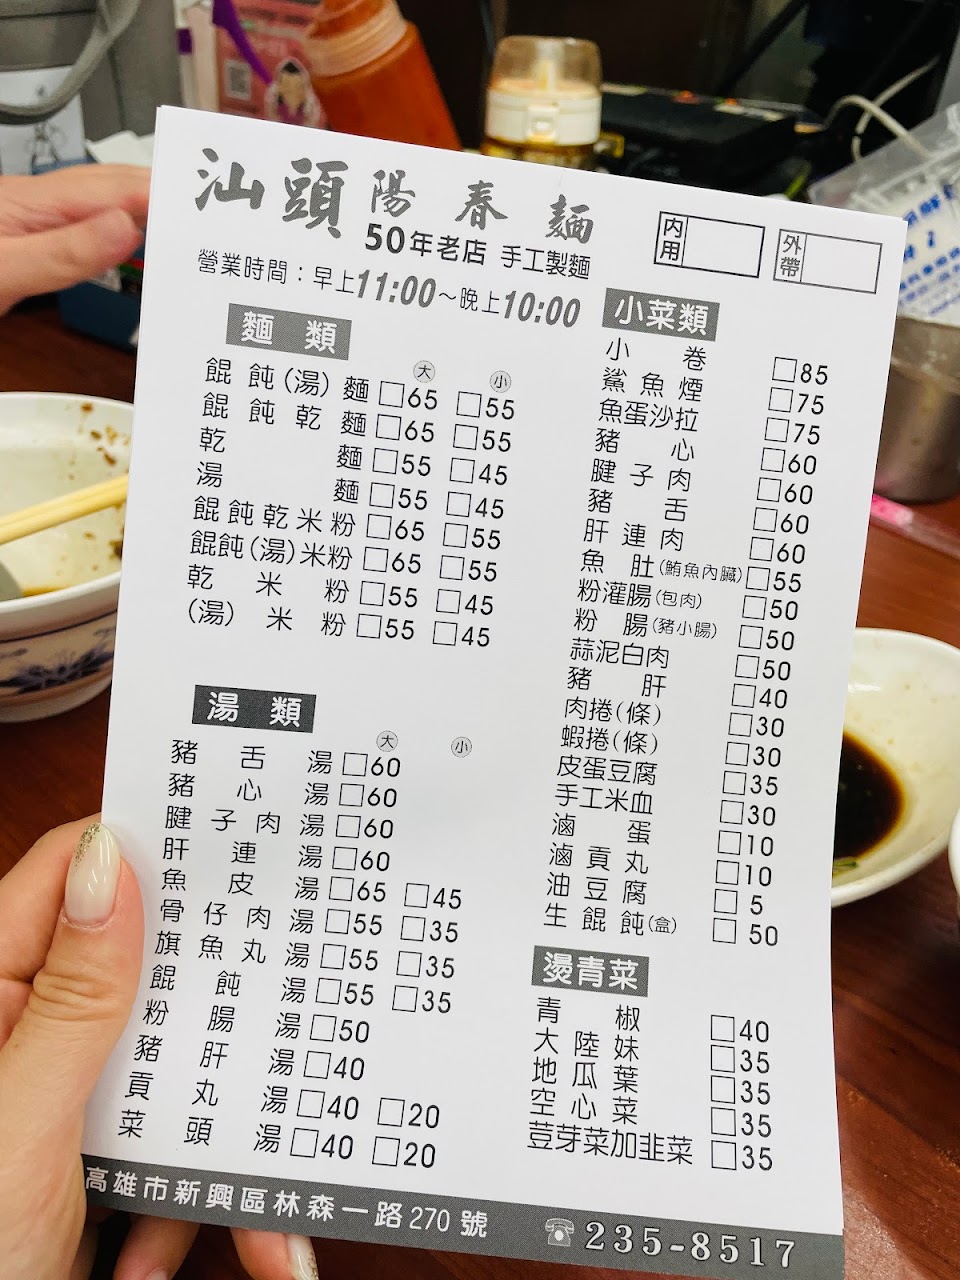 汕頭 陽春麵
50年老店 手工製麵
內用
外帶
營業時間：早上11:00～晚上10:00
麵類
大 小
餛飩(湯)麵 □65 □55
餛飩乾麵 □65 □55
乾麵 □55 □45
湯麵 □55 □45
餛飩乾米粉 □65 □55
餛飩(湯)米粉 □65 □55
乾米粉 □55 □45
(湯)米粉 □55 □45
湯類
大 小
豬舌湯 □60
豬心湯 □60
腱子肉湯 □60
肝連湯 □60
魚皮湯 □65 □45
骨仔肉湯 □55 □35
旗魚丸湯 □55 □35
餛飩湯 □55 □35
粉腸湯 □50
豬肝湯 □40
貢丸湯 □40 □20
菜頭湯 □40 □20
小菜類
小卷 □85
鯊魚煙 □75
魚蛋沙拉 □75
豬心 □60
腱子肉 □60
豬舌 □60
肝連肉 □60
魚肚(鮪魚內臟) □55
粉灌腸(包肉) □50
粉腸(豬小腸) □50
蒜泥白肉 □50
豬肝 □40
肉捲(條) □30
蝦捲(條) □30
皮蛋豆腐 □35
手工米血 □30
滷蛋 □10
滷貢丸 □10
油豆腐 □5
生餛飩(盒) □50
燙青菜
青椒 □40
大陸妹 □35
地瓜葉 □35
空心菜 □35
荳芽菜加韭菜 □35
高雄市新興區林森一路270號 ☎235-8517